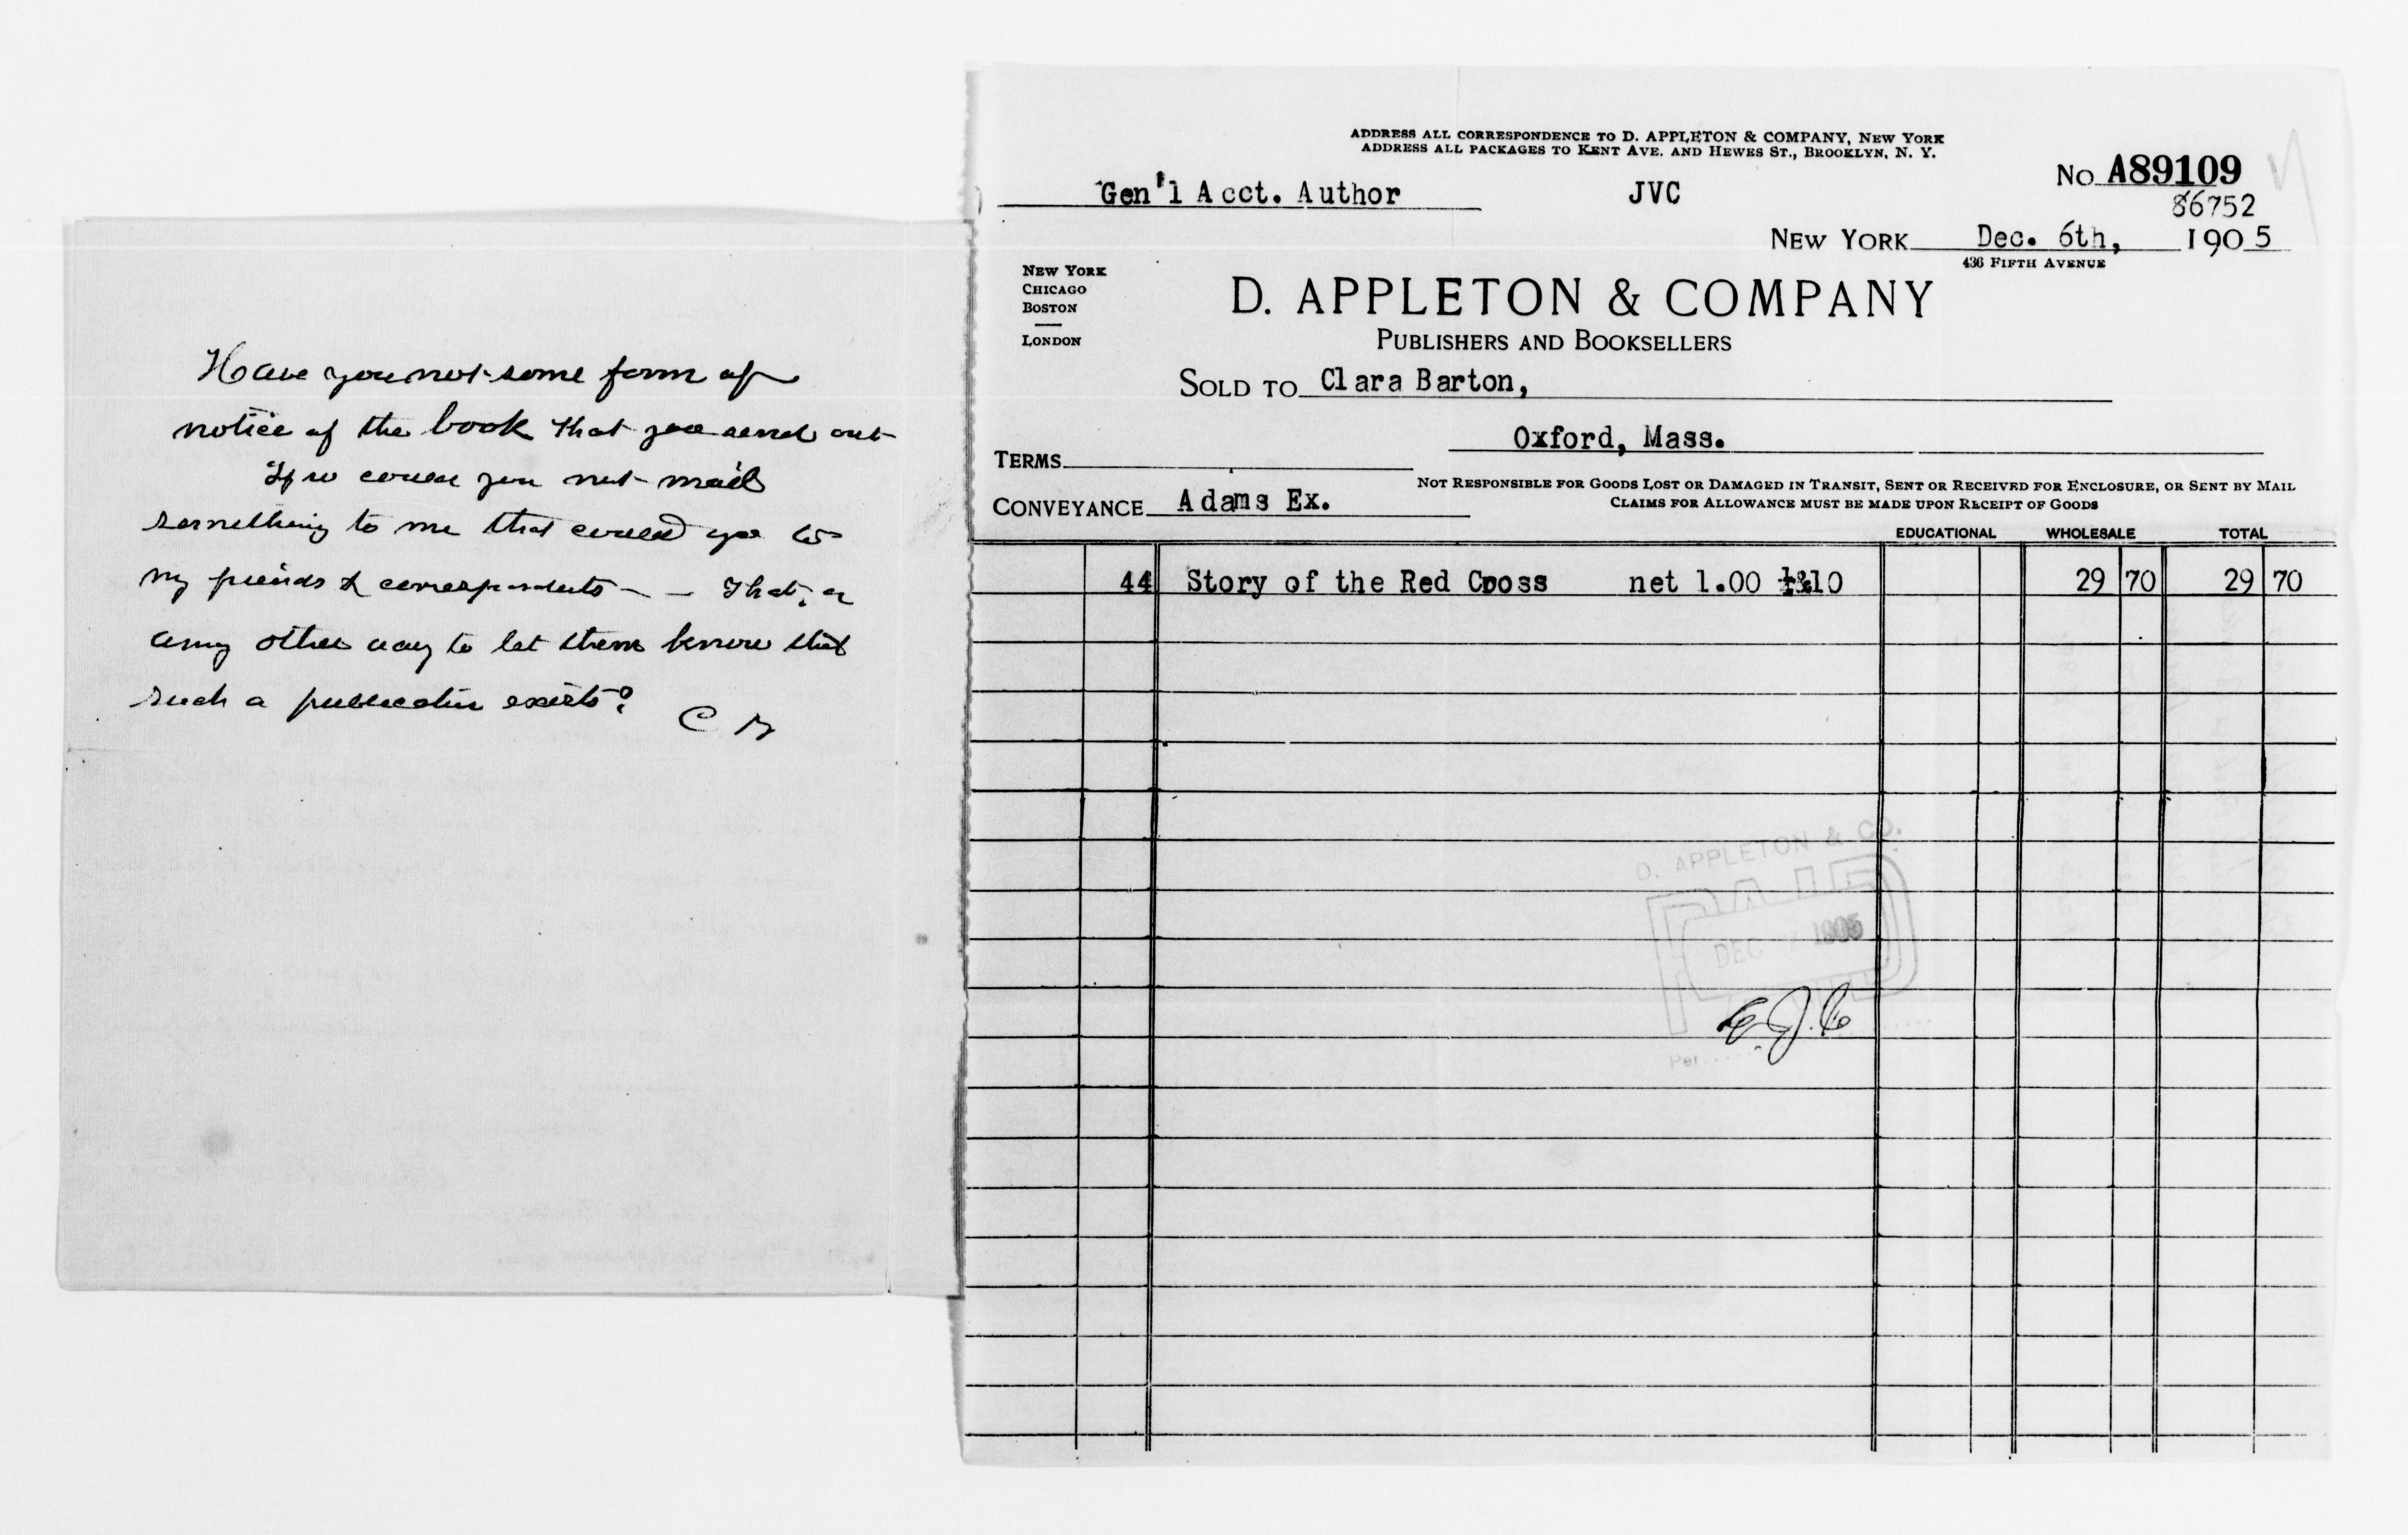 Have you not some form of
notice of the book that you send out
If so could you not mail
something to me that could go to
my friends & correspondents — — That, or
any other way to let them know that
such a publication exists?
C B
ADDRESS ALL CORRESPONDENCE TO D. APPLETON & COMPANY, NEW YORK
ADDRESS ALL PACKAGES TO KENT AVE. AND HEWES ST., BROOKLYN, N. Y.
No. A89109
86752
Gen'l Acct. Author JVC
NEW YORK Dec. 6th, 1905
436 FIFTH AVENUE
NEW YORK
CHICAGO
BOSTON
LONDON
D. APPLETON & COMPANY
PUBLISHERS AND BOOKSELLERS
SOLD TO Clara Barton,
Oxford, Mass.
TERMS
CONVEYANCE Adams Ex.
NOT RESPONSIBLE FOR GOODS LOST OR DAMAGED IN TRANSIT, SENT OR RECEIVED FOR ENCLOSURE, OR SENT BY MAIL
CLAIMS FOR ALLOWANCE MUST BE MADE UPON RECEIPT OF GOODS
EDUCATIONAL WHOLESALE TOTAL
44 Story of the Red Cross net 1.00 29 70 29 70
D. APPLETON & CO.
PAID
DEC 7 1905
Per